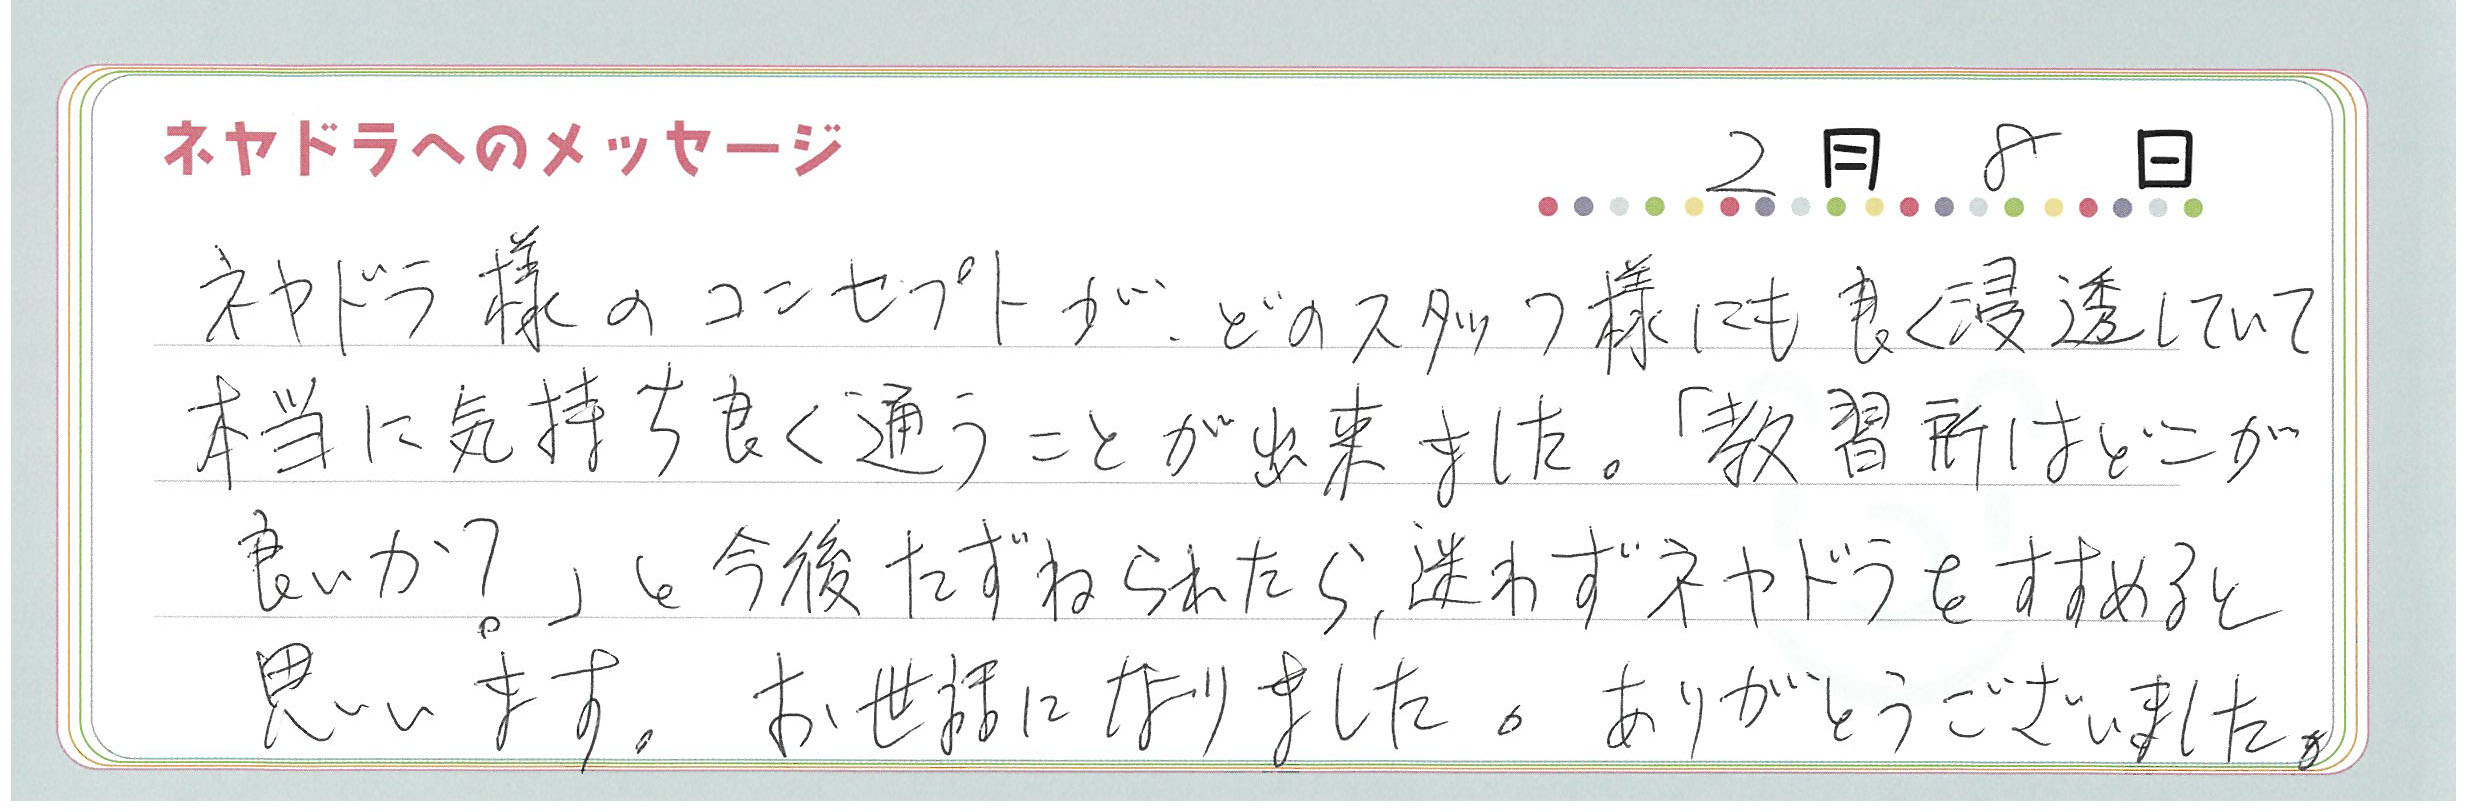 ネヤドラへのメッセージ
2月 8日
ネヤドラ様のコンセプトが、どのスタッフ様にも良く浸透していて
本当に気持ち良く通うことが出来ました。「教習所はどこが
良いか?」と今後たずねられたら、迷わずネヤドラをすすめると
思います。お世話になりました。ありがとうございました。